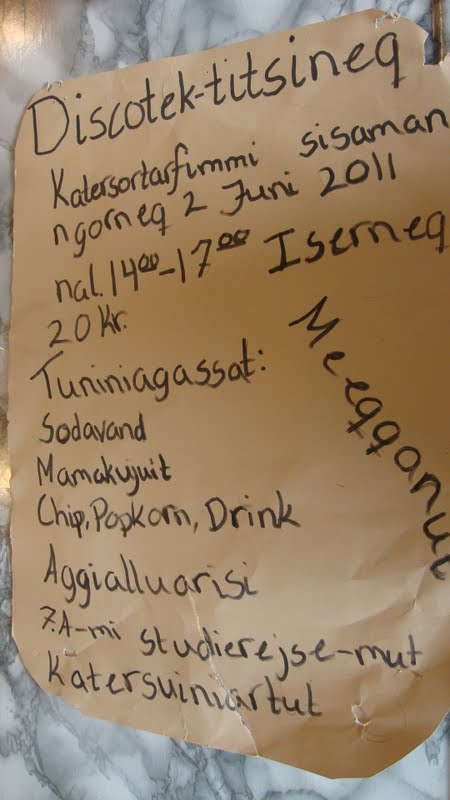 Discotek-titsineq
Katersortarfimmi sisaman
ngorneq 2 Juni 2011
nal. 14⁰⁰-17⁰⁰ Iserneq
20 Kr.
Meeqqanut
Tuniniagassat:
Sodavand
Mamakujuit
Chip, Popkorn, Drink
Aggialluarisi
7.A-mi studierejse-mut
Katersuiniartut